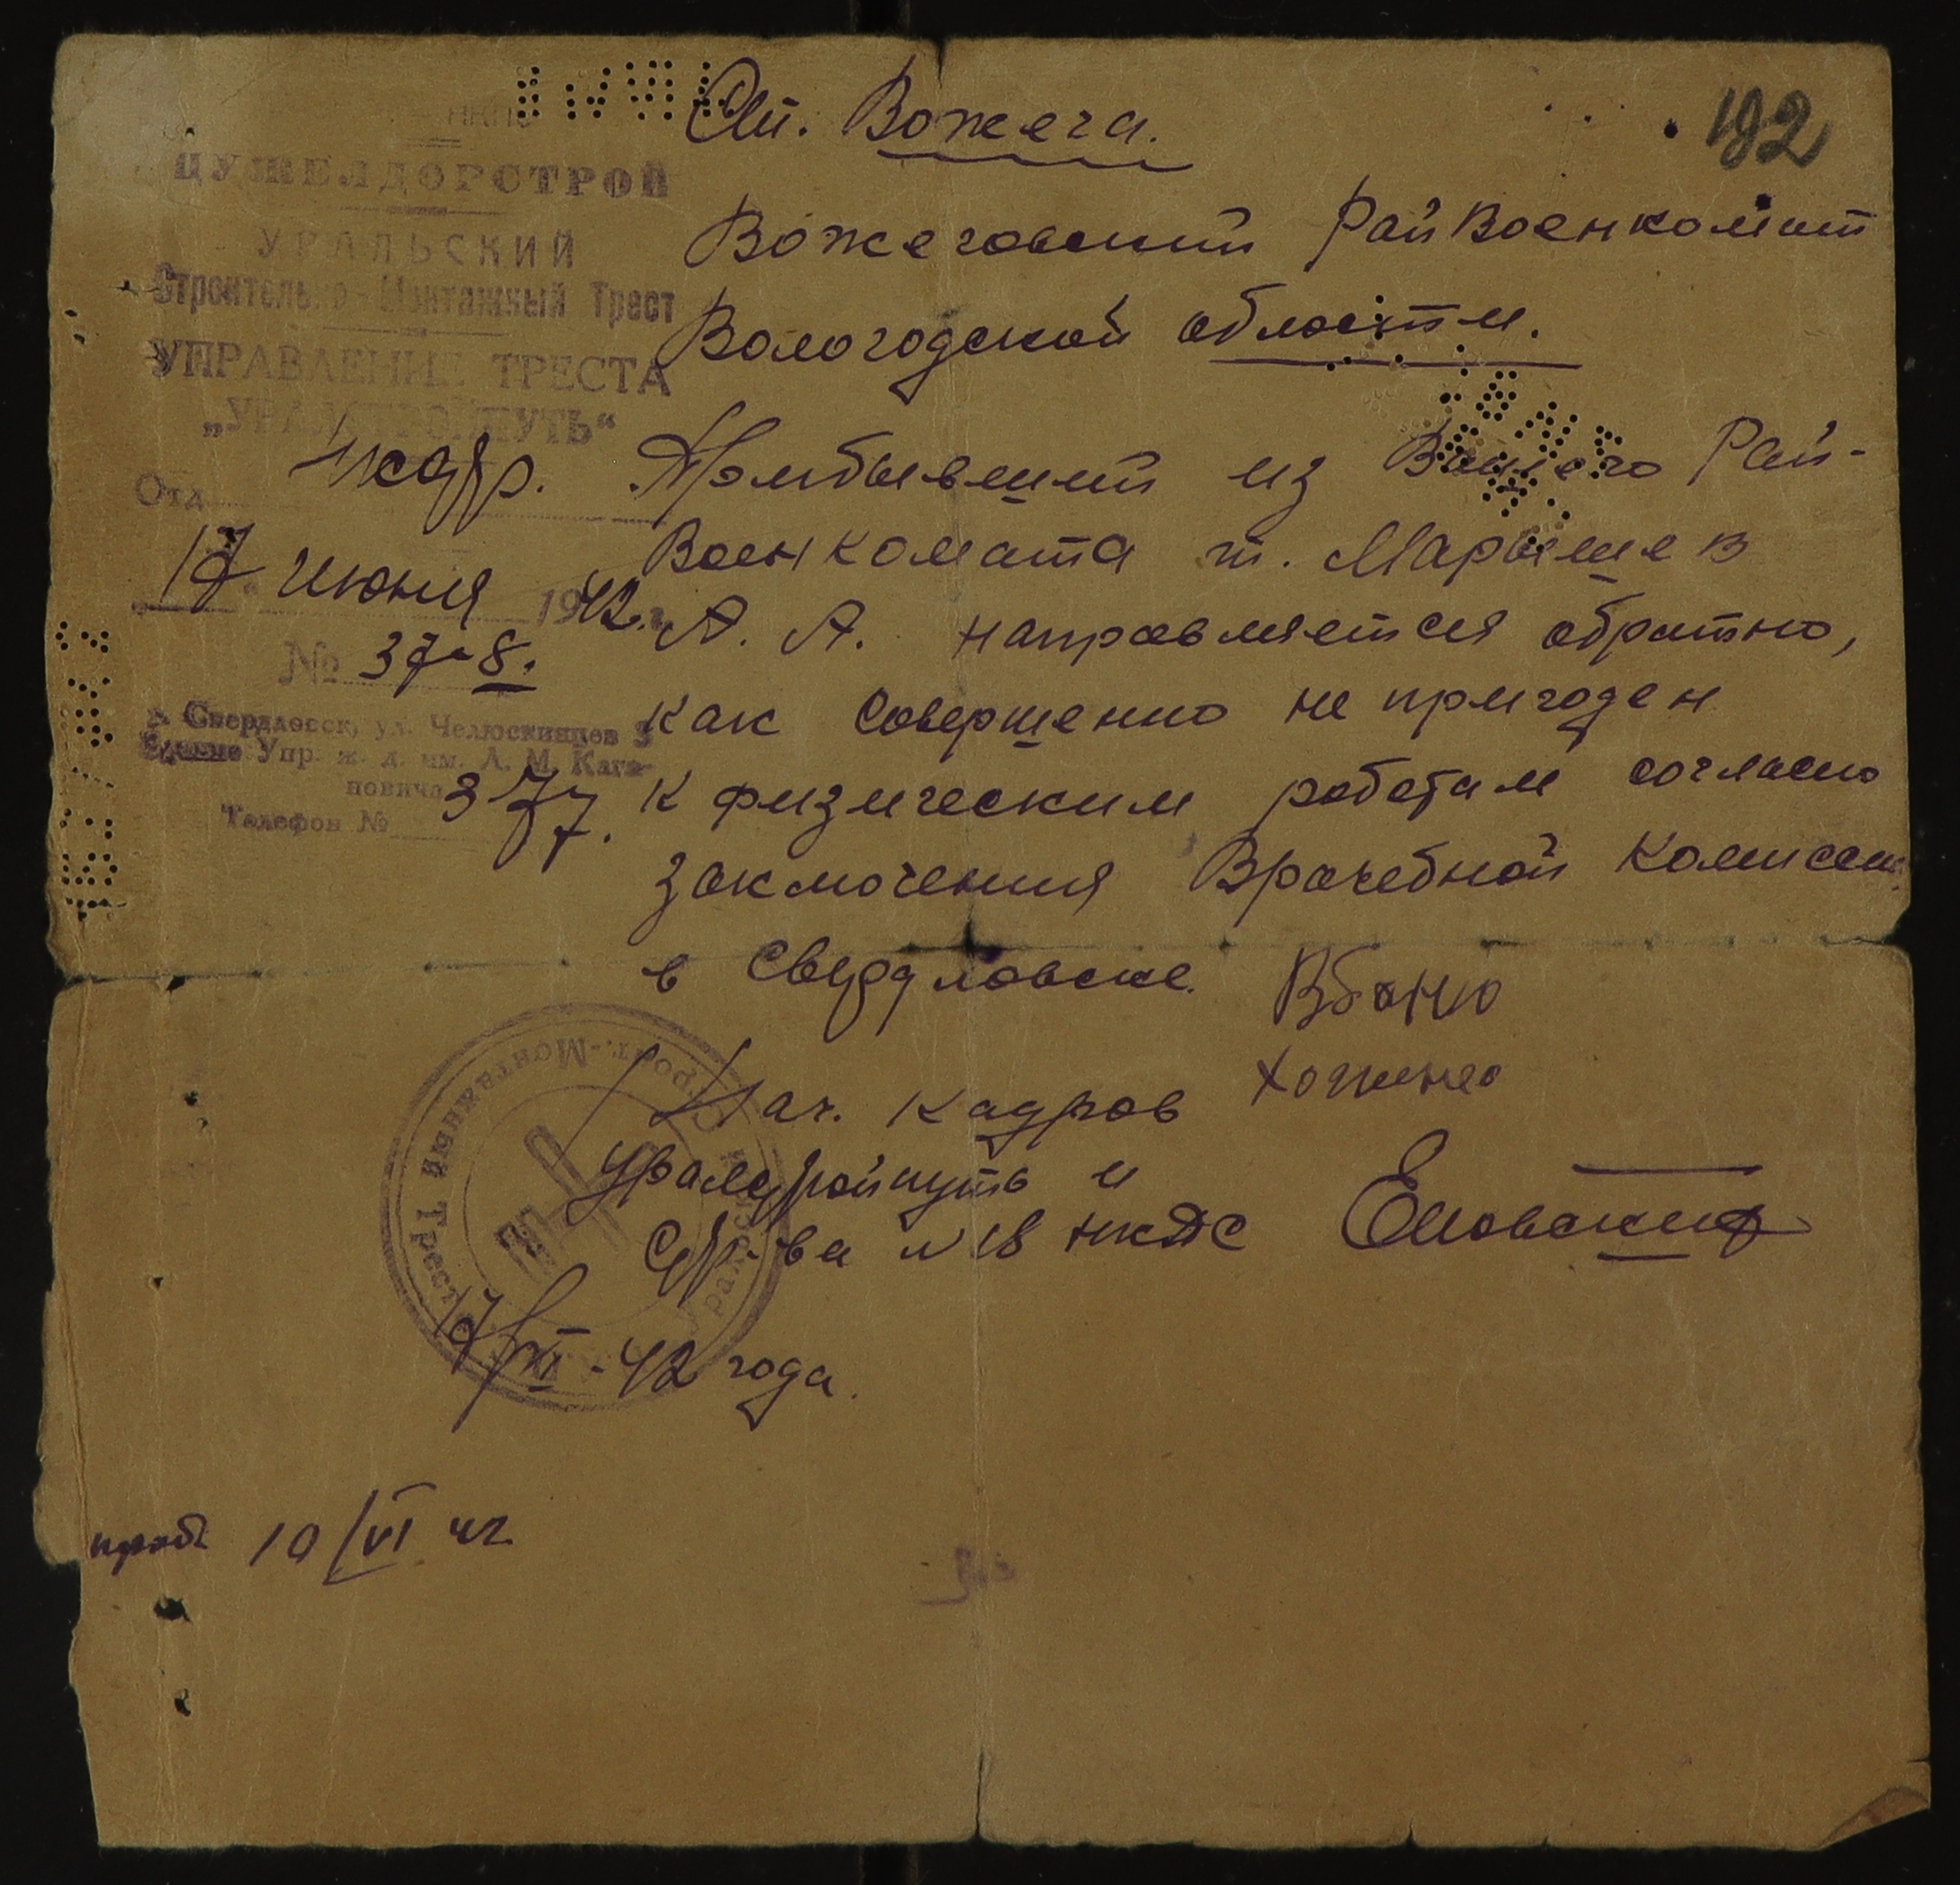 192
НКПС
ЦУЖЕЛДОРСТРОЙ
УРАЛЬСКИЙ
Строительно-Монтажный Трест
УПРАВЛЕНИЕ ТРЕСТА
„УРАЛСТРОЙПУТЬ“
Отд. кадр.
17 июня 1942 г.
№ 37-8.
г. Свердловск, ул. Челюскинцев
Упр. ж. д. им. Л. М. Кага-
новича
Телефон № 3-77.
Ст. Вожега.
Вожеговский РайВоенкомат
Вологодской области.
Прибывший из Вашего Рай-
Военкомата т. Марышев
А. А. направляется обратно,
как совершенно не пригоден
к физическим работам согласно
заключения Врачебной Комиссии
в Свердловске.
Нач. кадров
Уралстройпуть и
Стр-ва № 18 НКПС
17/VI-42 года.
Строит.-Монтажный Трест
10/VI 42